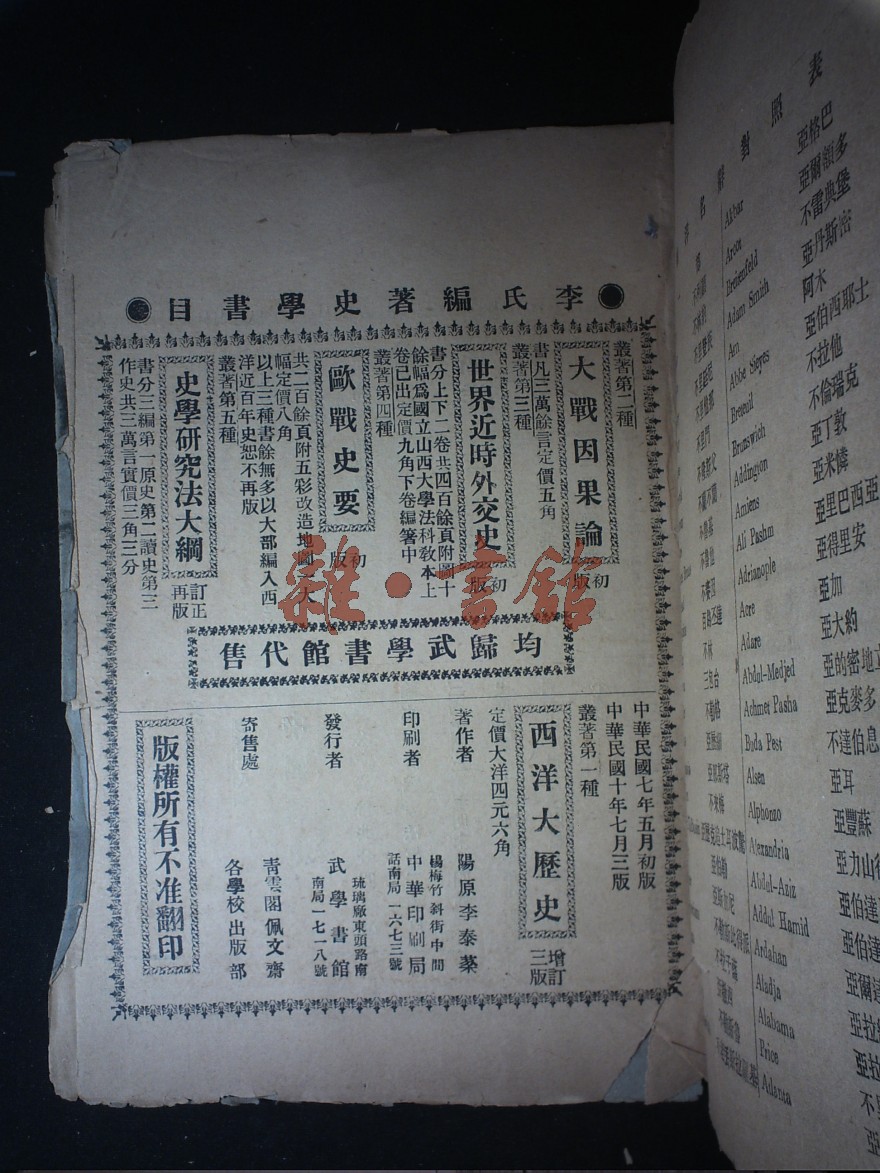 李氏編著史學書目
叢著第二種
大戰因果論
初版
書凡三萬餘言定價五角
叢著第三種
世界近時外交史
初版
書分上下二卷共四百餘頁附圖十
餘幅爲國立山西大學法科教本上
卷已出定價九角下卷編著中
叢著第四種
歐戰史要
初版
共二百餘頁附五彩改造地圖一大
幅定價八角
以上三種書餘無多以大部編入西
洋近百年史恕不再版
叢著第五種
史學研究法大綱
訂正再版
書分三編第一原史第二讀史第三
作史共三萬言實價三角三分
均歸武學書館代售
中華民國七年五月初版
中華民國十年七月三版
叢著第一種
西洋大歷史
增訂三版
定價大洋四元六角
著作者
陽原李泰棻
印刷者
楊梅竹斜街中間
中華印刷局
話南局一六七三號
發行者
琉璃廠東頭路南
武學書館
南局一七一八號
寄售處
青雲閣佩文齋
各學校出版部
版權所有不准翻印
雜·書館
對照表
Akbar
亞格巴
Arcot
亞爾額多
不雷典堡
Adam Smith
亞丹斯密
阿木
Abbe Sieyes
亞伯西耶士
Breteuil
不拉他
Brunswich
不倫瑞克
Addington
亞丁敦
Amiens
亞米憐
Ali Pashm
亞里巴西亞
Adrianople
亞得里安
Acre
亞加
Adare
亞大約
Abdul-Medjed
亞的密地立
Achmet Pasha
亞克麥多
Buda Pest
不達伯息
Alsen
亞耳
Alphonzo
亞豐蘇
Alexandria
亞力山得
Abdul-Aziz
亞伯達
Addul Hamid
亞伯達
Ardahan
亞爾達
Aladja
Alabama
Price
Adanta